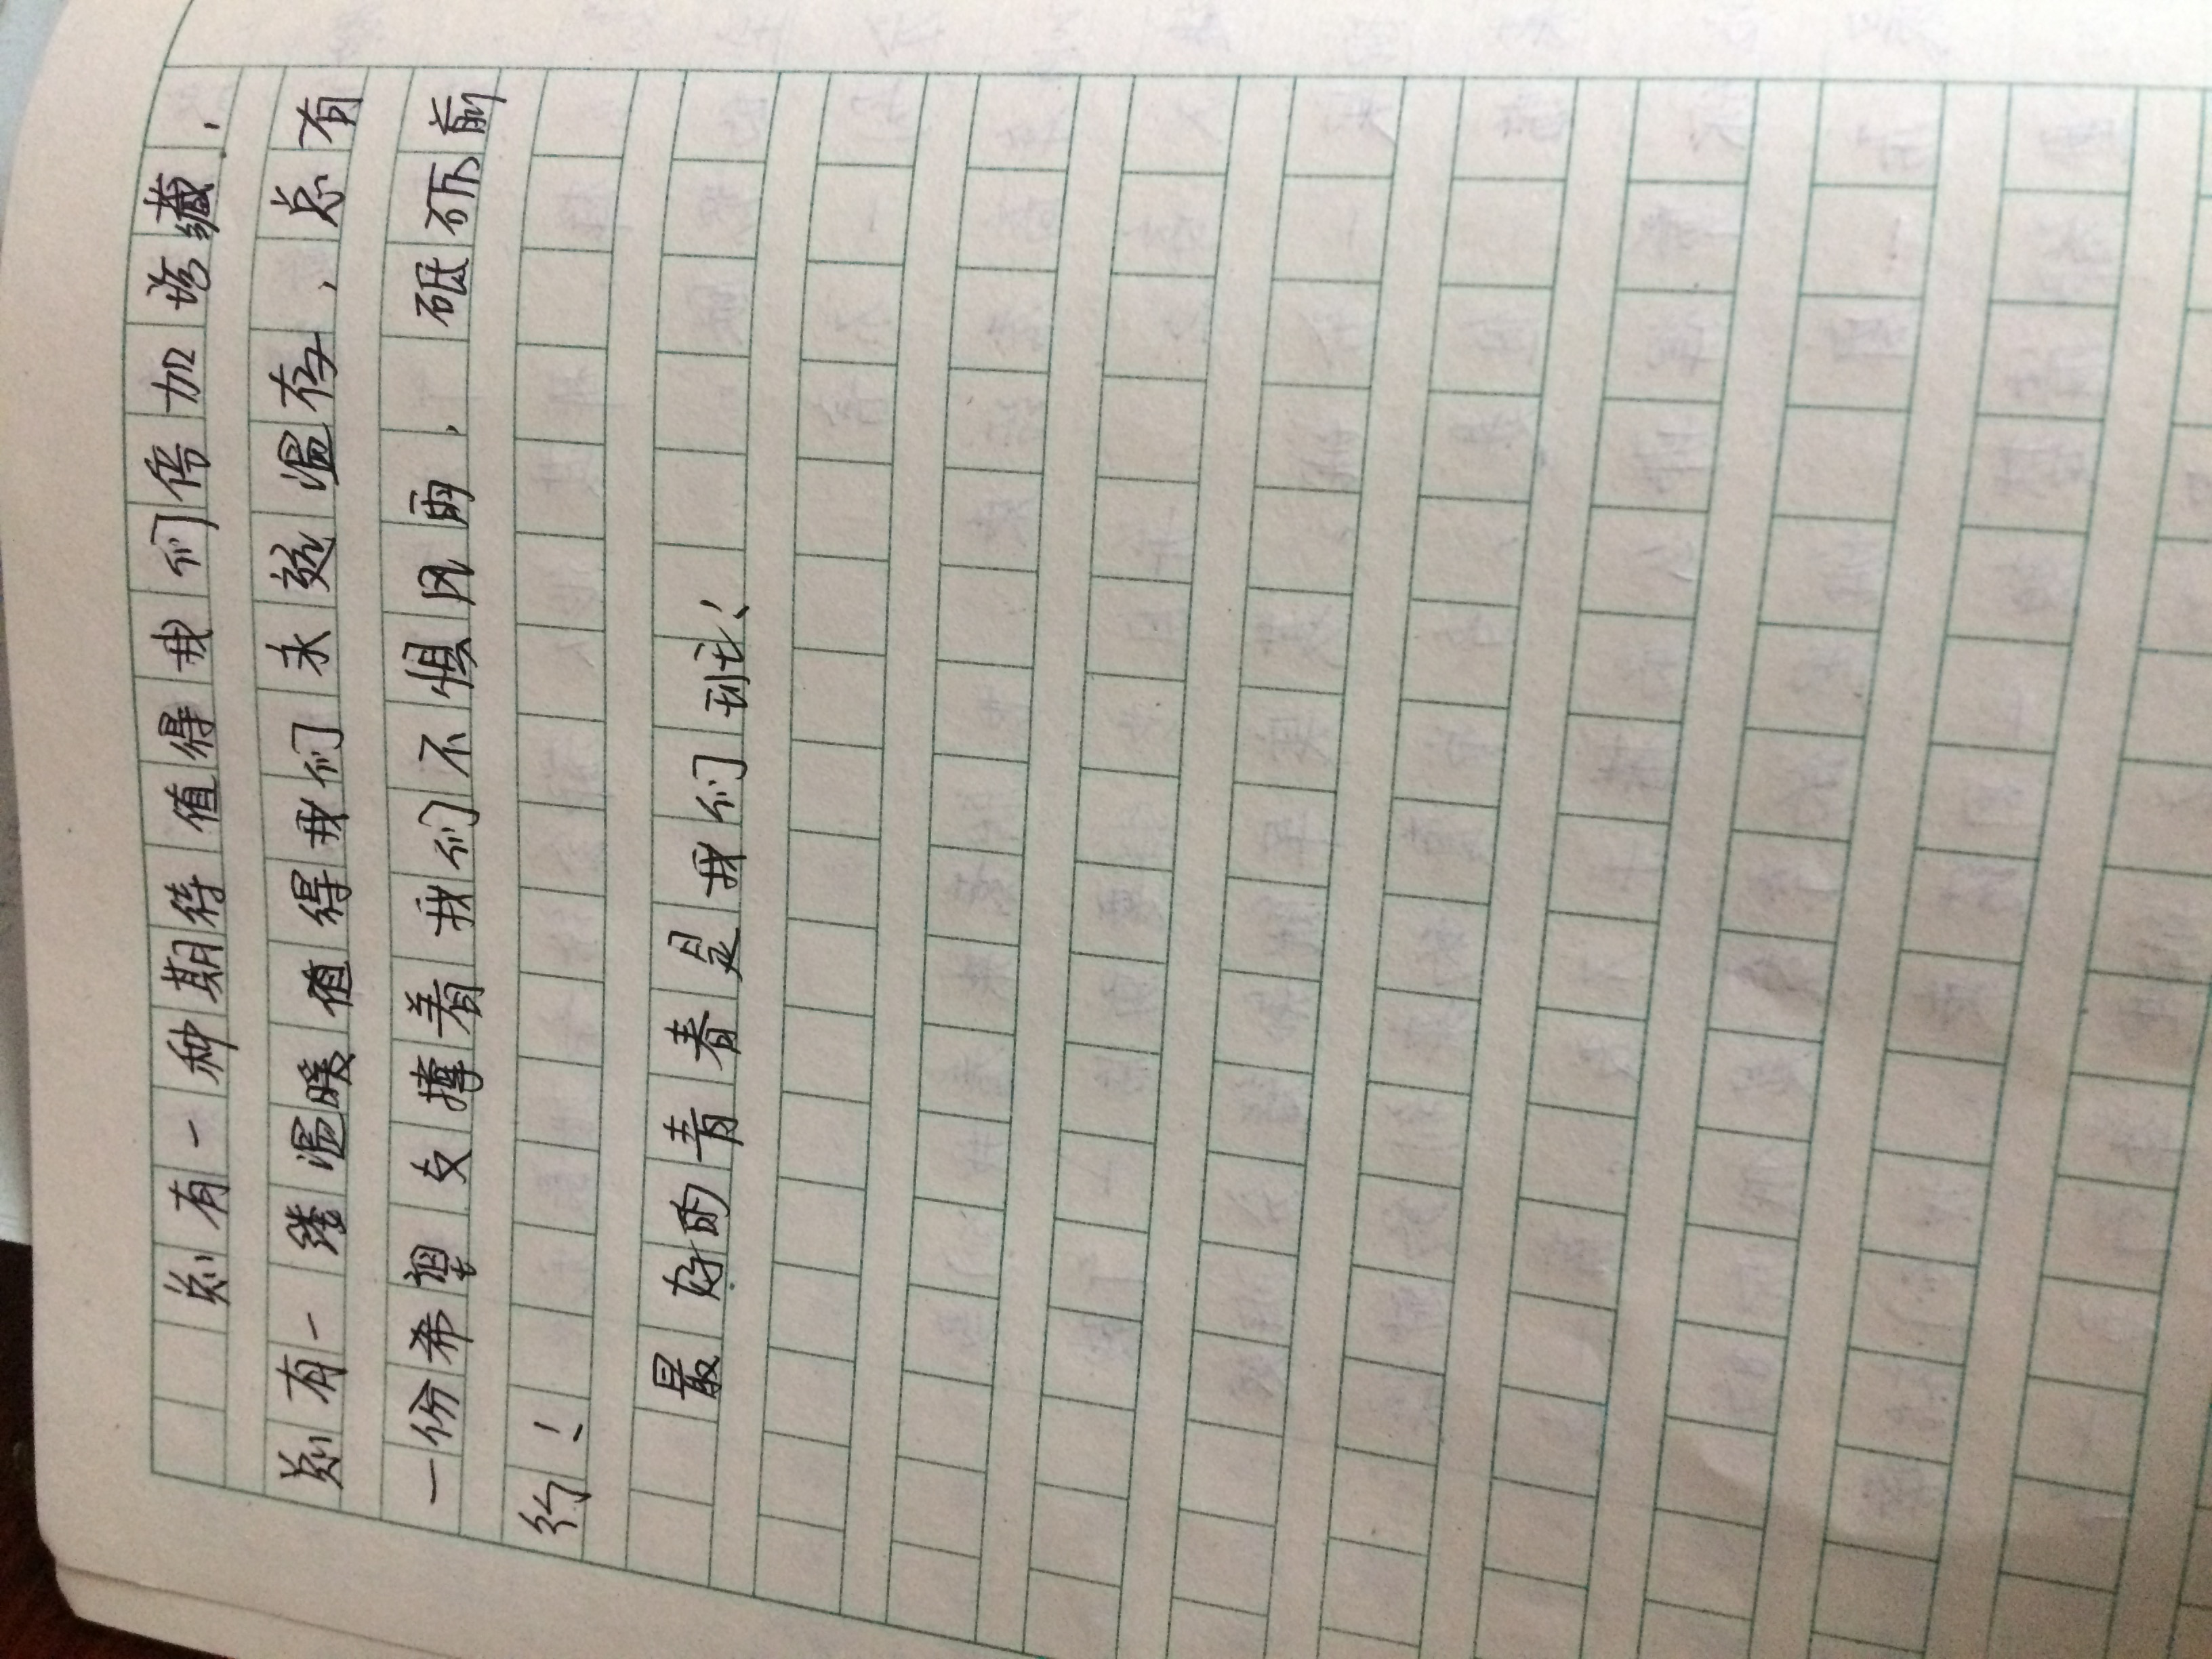 总有一种期待值得我们倍加珍藏，
总有一缕温暖值得我们永远温存，总有
一份希望支撑着我们不惧风雨，砥砺前
行！
最好的青春是我们